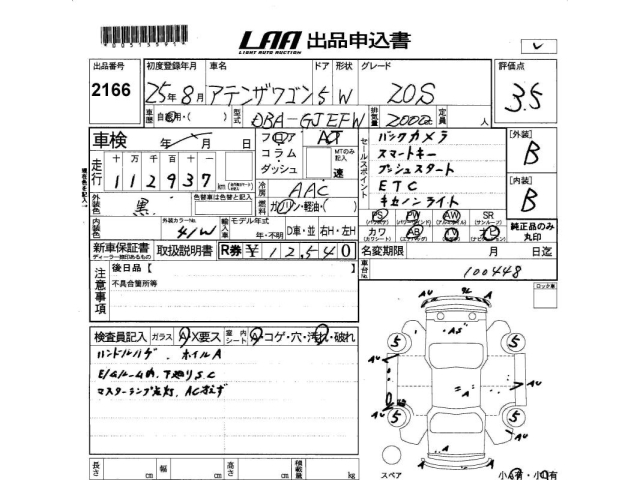 LAA 出品申込書
LIGHT AUTO AUCTION
出品番号 初度登録年月 車名 ドア 形状 グレード 評価点
2166 25年8月 アテンザワゴン 5 W 20S 3.5
車歴 自家用・( ) 型式 DBA-GJEFW 排気量 2000cc 定員 人
車検 年 月 日 フロア AT
コラム MTのみ記入
ダッシュ 速
セールスポイント バックカメラ
スマートキー
プッシュスタート
ETC
キセノンライト
[外装] B
[内装] B
走行 十 万 千 百 十 一
112937 km
冷房 AAC
外装色 黒 色替車は色替と記入
燃料 ガソリン・軽油・( )
内装色 外装カラーNo. 41W 輸入車 モデル年式 年・不明 D車・並 右H・左H
PS PW AW SR (サンルーフ)
カワ (カワシート) AB TV ナビ
純正品のみ丸印
新車保証書 取扱説明書 R券 ¥ 12,540
ディーラー印あるもの
名変期限 月 日迄
車台No. 100448
注意事項 後日品【
不具合箇所等
ロック車
検査員記入 ガラス A・X要ス 室内シート A・コゲ・穴・汚れ・破れ
ハンドルハゲ、ホイルA
E/Gルーム内、下廻りS.C
マスターランプ点灯、AC
5 5
5 5
AU AS AU
AU A AU
AU AU
長さ cm 幅 cm 高さ cm 積載量 kg
スペア 小A有・小U有